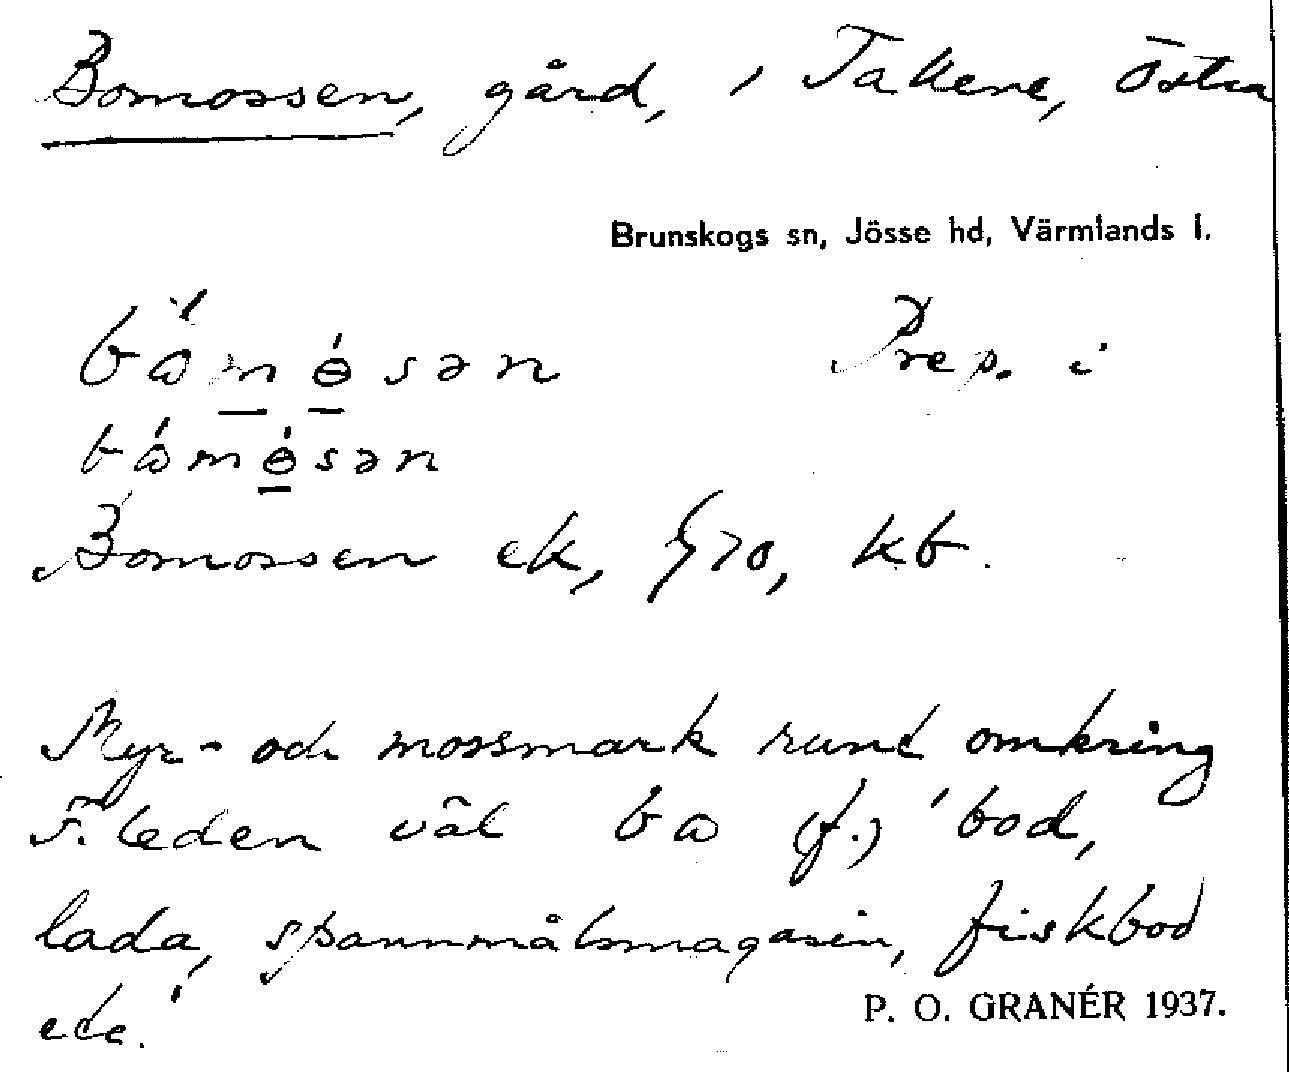 Bomossen, gård, i Takene, Östra
Brunskogs sn, Jösse hd, Värmlands l.
Prep. i
Bomossen ek, kb.
Myr- och mossmark runt omkring
F. leden väl bɷ (f.) 'bod,
lada, spannmålsmagasin, fiskbod
etc.'
P. O. GRANÉR 1937.